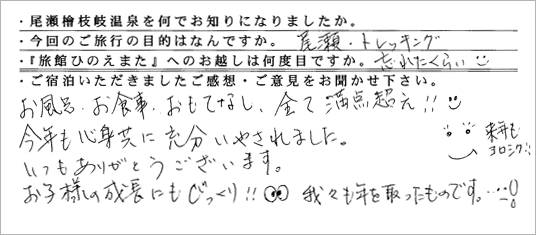 ・尾瀬檜枝岐温泉を何でお知りになりましたか。
・今回のご旅行の目的はなんですか。 尾瀬・トレッキング
・『旅館ひのえまた』へのお越しは何度目ですか。 忘れたくらい
・ご宿泊いただきましたご感想・ご意見をお聞かせ下さい。
お風呂、お食事、おもてなし、全て満点超え!!
今年も心身共に充分いやされました。
いつもありがとうございます。
来年も
ヨロシク!!
お子様の成長にもびっくり!! 我々も年を取ったものです。…